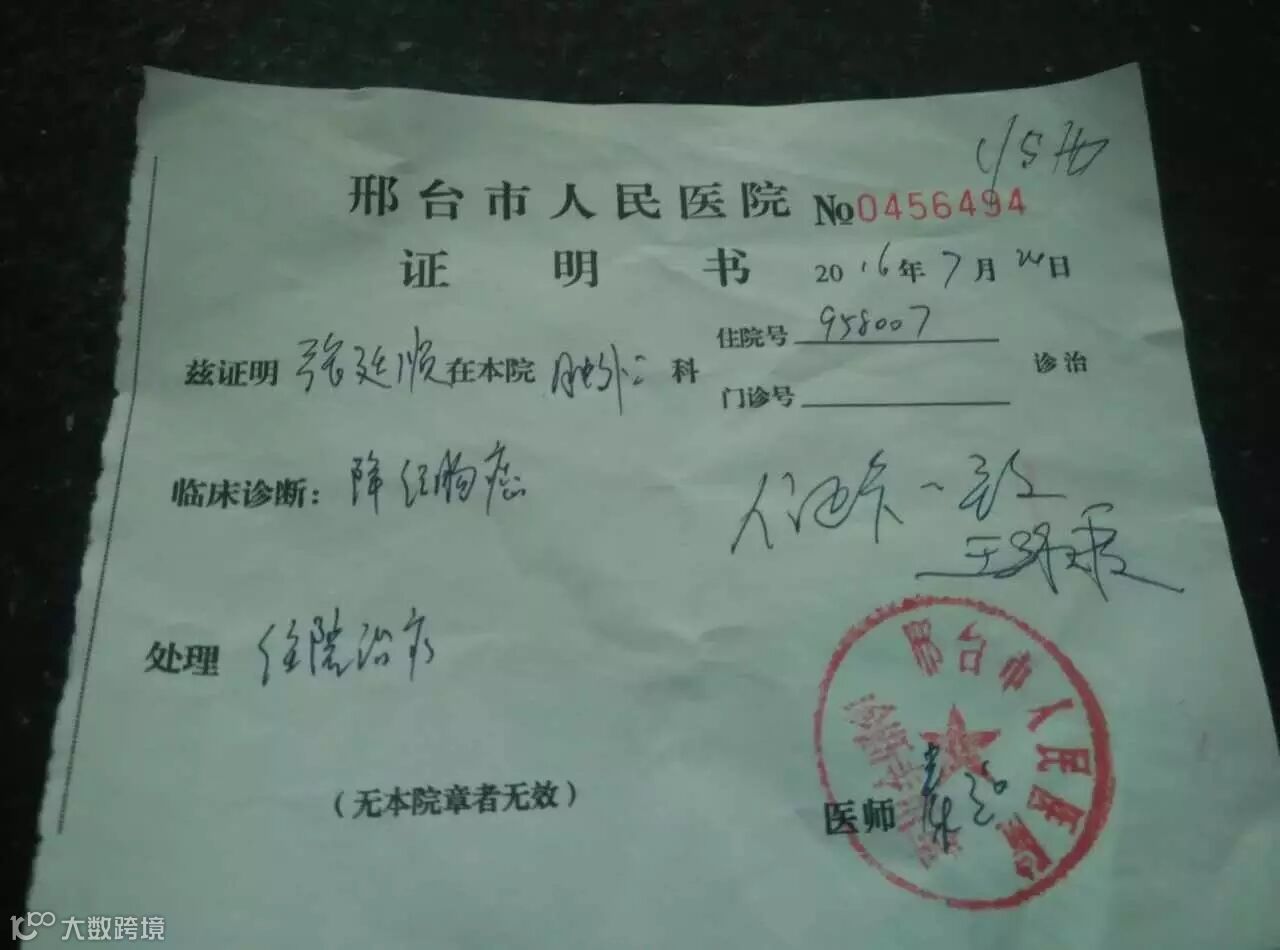 邢台市人民医院 №0456494
证明书 2016年7月24日
兹证明 张廷顺 在本院 胸外二 科 住院号 958007 诊治
门诊号
临床诊断: 降结肠癌
人证卡一致
处理 住院治疗
邢台市人民医院
(无本院章者无效)
医师
大数跨境